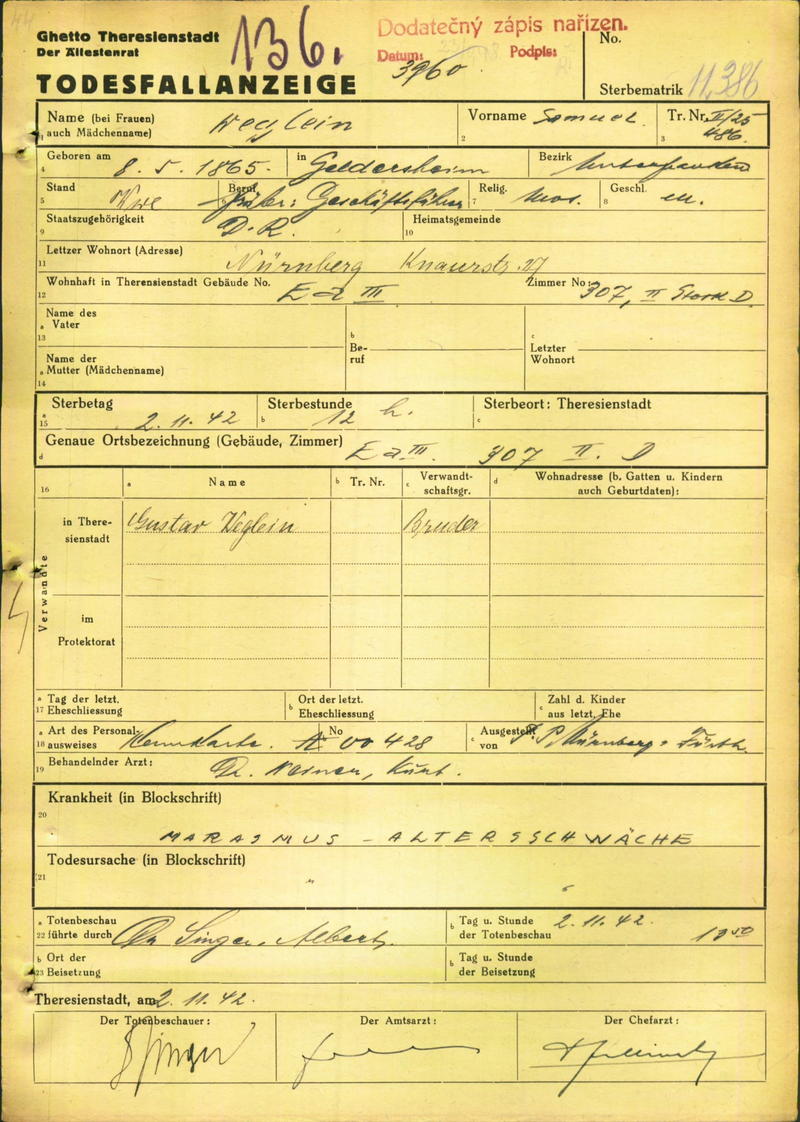 Ghetto Theresienstadt
Der Ältestenrat
TODESFALLANZEIGE
136.
Dodatečný zápis nařízen.
Datum: Podpis:
3960
No.
Sterbematrik 11,386
Name (bei Frauen) auch Mädchenname) Weglein
Vorname Samuel
2
Tr. Nr. II/25
3 486.
Geboren am 8. 5. 1865. in Geldersheim Bezirk Unterfranken
4
Stand Beruf früher: Geschäftsführer Relig. mos. Geschl. m.
5 7 8
Staatszugehörigkeit D. R. Heimatsgemeinde
9 10
Lettzer Wohnort (Adresse)
11 Nürnberg Knauerstr. 27
Wohnhaft in Therensienstadt Gebäude No. E a III Zimmer No: 307, II Stock D.
12
Name des
a Vater
13
b
Be-
ruf
c
Letzter
Wohnort
Name der
a Mutter (Mädchenname)
14
Sterbetag 2. 11. 42 Sterbestunde 12 h. Sterbeort: Theresienstadt
a 15 b c
Genaue Ortsbezeichnung (Gebäude, Zimmer) E a III. 307 II. D
d
16 a Name b Tr. Nr. c Verwandt-
schaftsgr. d Wohnadresse (b. Gatten u. Kindern
auch Geburtdaten):
Verwandte
in There-
sienstadt
Gustav Weglein Bruder
im
Protektorat
a Tag der letzt.
17 Eheschliessung
b Ort der letzt.
Eheschliessung
c Zahl d. Kinder
aus letzt. Ehe
a Art des Personal-
18 ausweises Kennkarte. No A 00428
c Ausgestellt
von P. P. Nürnberg-Fürth.
Behandelnder Arzt:
19 Dr. Kurt.
Krankheit (in Blockschrift)
20
MARASMUS - ALTERSSCHWÄCHE
Todesursache (in Blockschrift)
21
"
a Totenbeschau
22 führte durch Dr Singer Albert.
b Tag u. Stunde
der Totenbeschau 2. 11. 42.
b Ort der
23 Beisetzung
b Tag u. Stunde
der Beisetzung
Theresienstadt, am 2. 11. 42.
Der Totenbeschauer: Der Amtsarzt: Der Chefarzt:
Singer